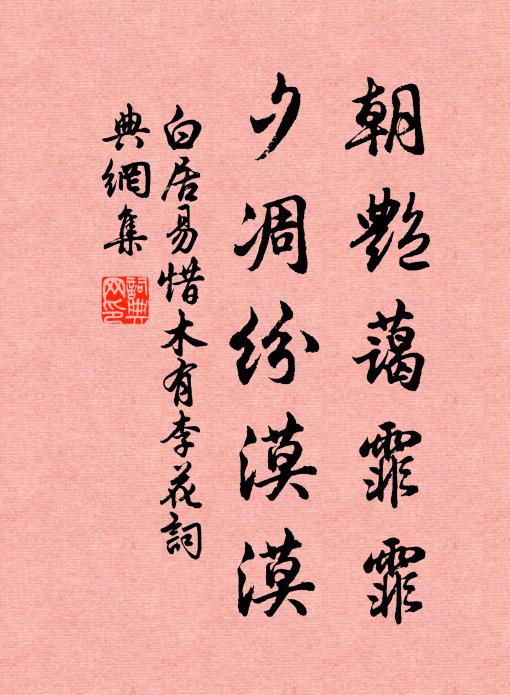 朝艷藹霏霏
夕凋紛漠漠
白居易惜木有李花詞
典網集
詞典
网印